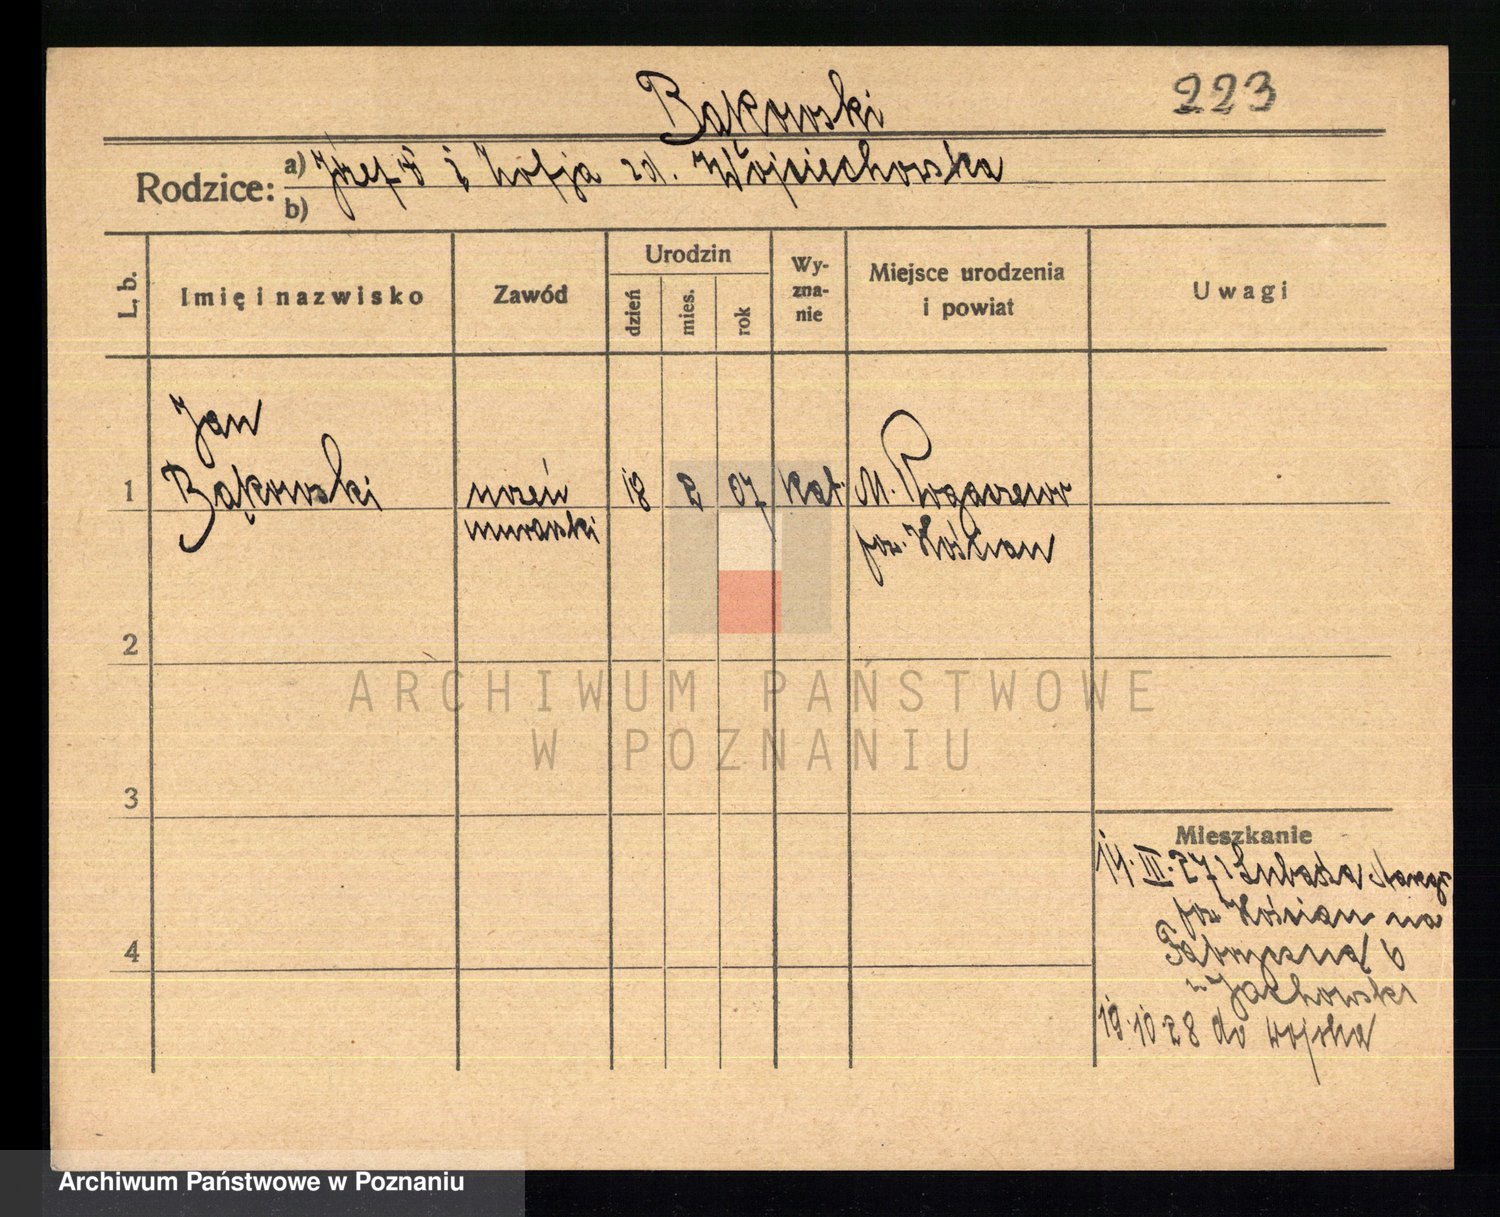 Bąkowski
223
Rodzice:
a) Józef i Zofja zd. Wojciechowska
b)
L. b.
Imię i nazwisko
Zawód
Urodzin
dzień
mies.
rok
Wy-
zna-
nie
Miejsce urodzenia
i powiat
Uwagi
Jan
1 Bąkowski uczeń 18 2 07 kat. M. Rogaczewo
murarski pow. Kościan
2
ARCHIWUM PAŃSTWOWE
W POZNANIU
3
Mieszkanie
14.III.27
pow Kościan na
4
Fabryczna 6
Jachowski
19.10.28 do wojska
Archiwum Państwowe w Poznaniu